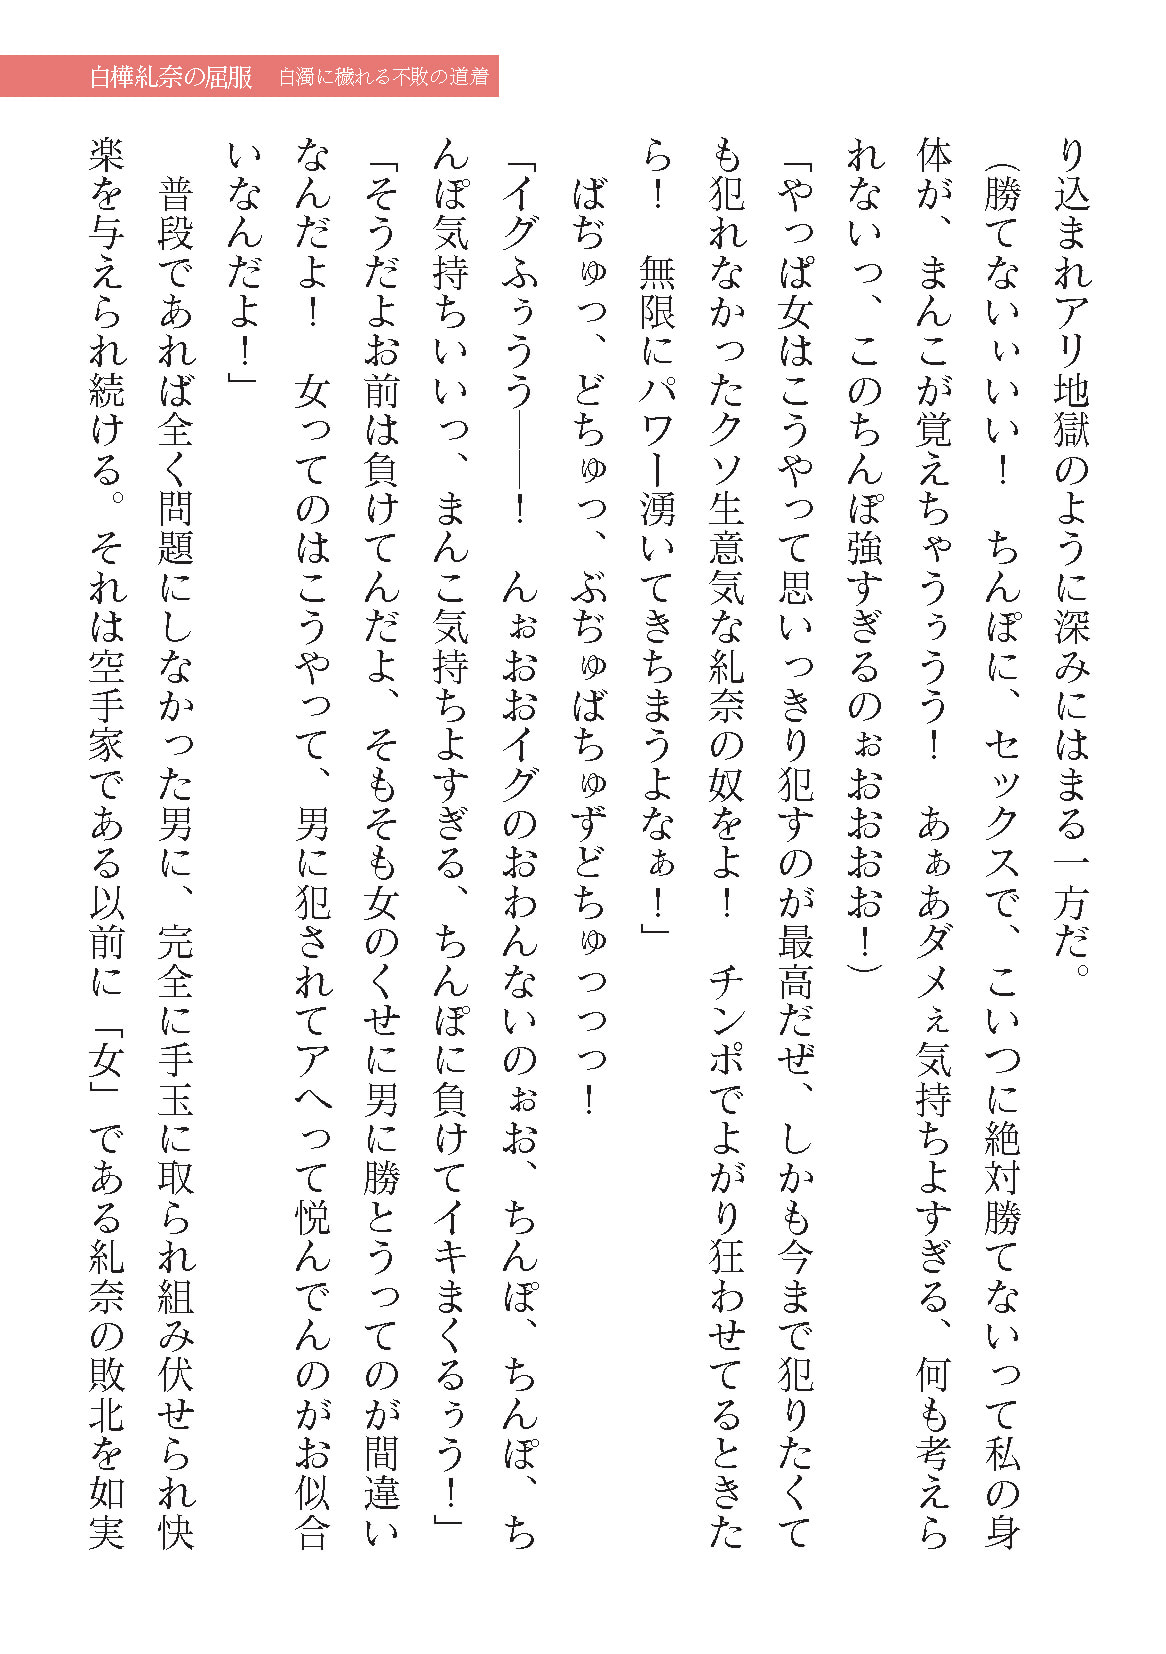 白樺糺奈の屈服　白濁に穢れる不敗の道着
り込まれアリ地獄のように深みにはまる一方だ。
（勝てないぃいい！　ちんぽに、セックスで、こいつに絶対勝てないって私の身
体が、まんこが覚えちゃうぅうう！　あぁあダメぇ気持ちよすぎる、何も考えら
れないっ、このちんぽ強すぎるのぉおおおお！）
「やっぱ女はこうやって思いっきり犯すのが最高だぜ、しかも今まで犯りたくて
も犯れなかったクソ生意気な糺奈の奴をよ！　チンポでよがり狂わせてるときた
ら！　無限にパワー湧いてきちまうよなぁ！」
　ばぢゅっ、どちゅっ、ぶぢゅばちゅずどちゅっっっ！
「イグふぅうう――！　んぉおおイグのおわんないのぉお、ちんぽ、ちんぽ、ち
んぽ気持ちいいっ、まんこ気持ちよすぎる、ちんぽに負けてイキまくるぅう！」
「そうだよお前は負けてんだよ、そもそも女のくせに男に勝とうってのが間違い
なんだよ！　女ってのはこうやって、男に犯されてアヘって悦んでんのがお似合
いなんだよ！」
　普段であれば全く問題にしなかった男に、完全に手玉に取られ組み伏せられ快
楽を与えられ続ける。それは空手家である以前に「女」である糺奈の敗北を如実